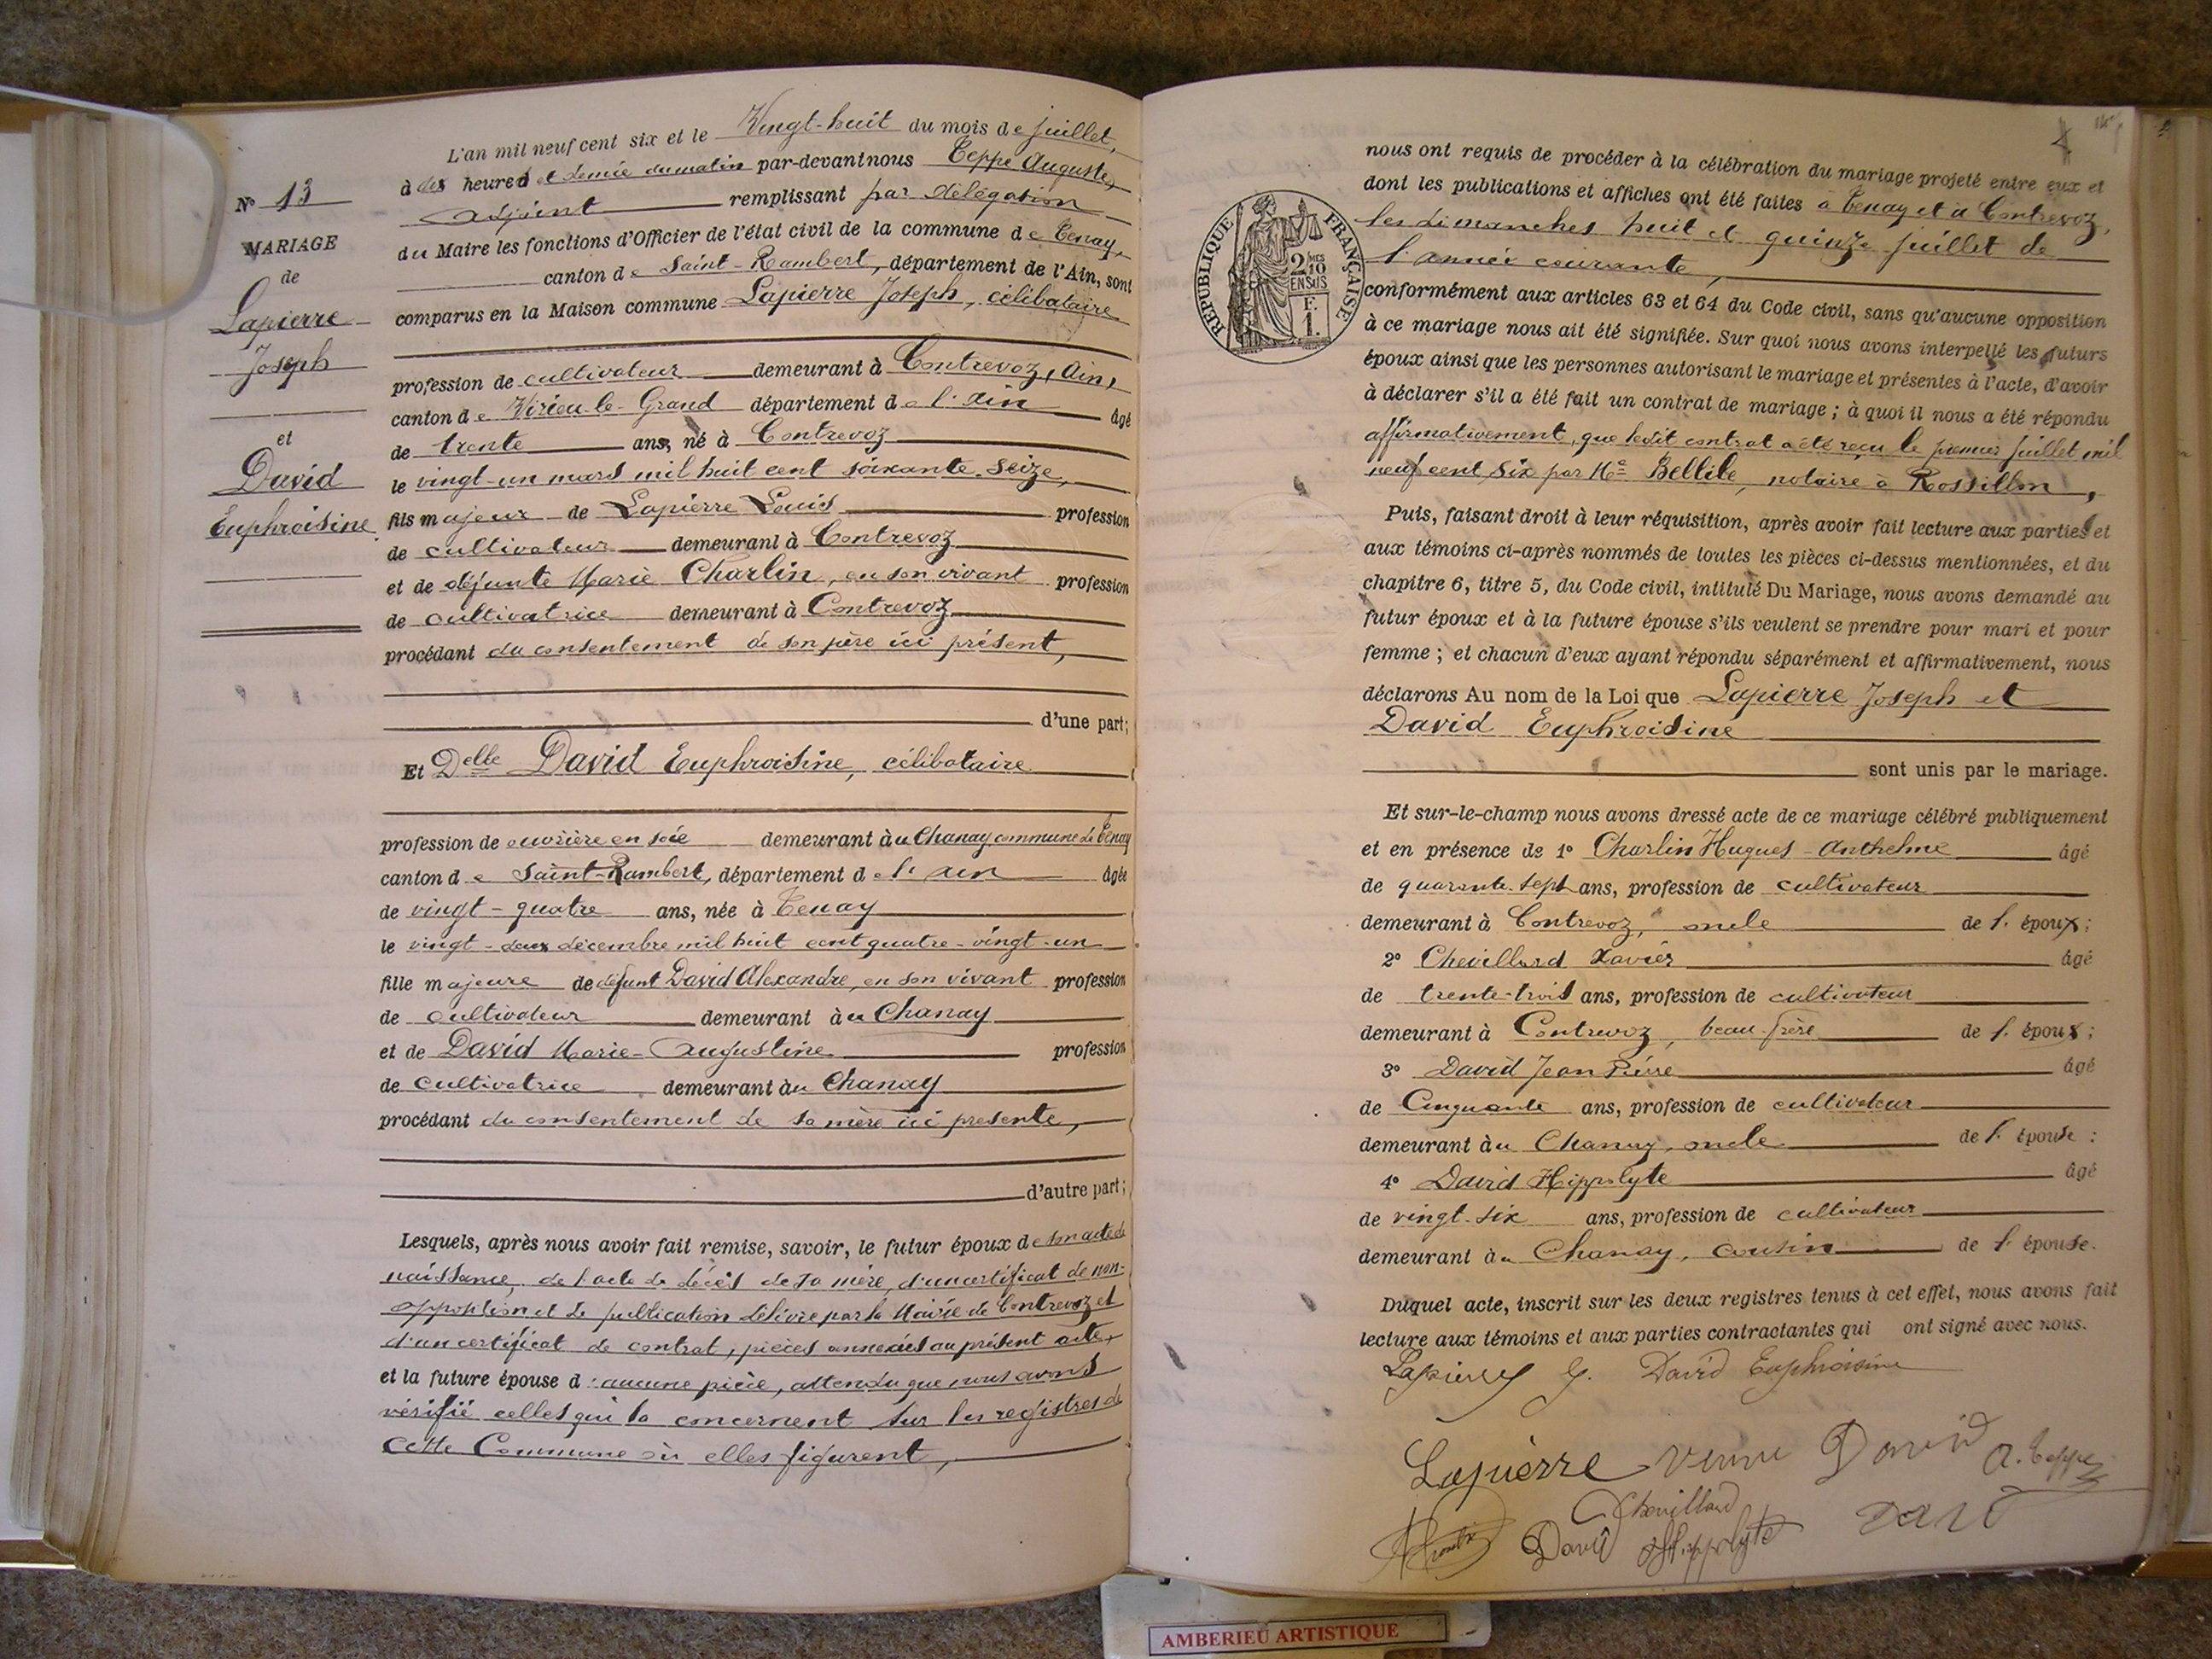 L'an mil neuf cent six et le Vingt-huit du mois de juillet,
à dix heures et demie du matin par-devant nous Teppe Auguste,
adjoint remplissant par délégation
du Maire les fonctions d'Officier de l'état civil de la commune de Tenay,
canton de Saint-Rambert, département de l'Ain, sont
comparus en la Maison commune Lapierre Joseph, célibataire
profession de cultivateur demeurant à Contrevoz, Ain,
canton de Virieu-le-Grand département de l'Ain âgé
de trente ans, né à Contrevoz
le vingt-un mars mil huit cent soixante-seize,
fils majeur de Lapierre Louis profession
de cultivateur demeurant à Contrevoz
et de défunte Marie Charlin, en son vivant profession
de cultivatrice demeurant à Contrevoz
procédant du consentement de son père ici présent,
d'une part;
Et Delle David Euphroisine, célibataire
profession de ouvrière en soie demeurant à u Chanay commune de Tenay
canton de Saint-Rambert, département de l'Ain âgée
de vingt-quatre ans, née à Tenay
le vingt-deux décembre mil huit cent quatre-vingt-un
fille majeure de défunt David Alexandre, en son vivant profession
de cultivateur demeurant à u Chanay
et de David Marie-Augustine profession
de cultivatrice demeurant à u Chanay
procédant du consentement de sa mère ici présente,
d'autre part;
Lesquels, après nous avoir fait remise, savoir, le futur époux de son acte de
naissance, de l'acte de décès de sa mère, d'un certificat de non-
opposition et de publication délivré par la Mairie de Contrevoz et
d'un certificat de contrat, pièces annexées au présent acte,
et la future épouse d'aucune pièce, attendu que nous avons
vérifié celles qui la concernent sur les registres de
cette Commune où elles figurent,
N° 13
MARIAGE
de
Lapierre
Joseph
et
David
Euphroisine
nous ont requis de procéder à la célébration du mariage projeté entre eux et
dont les publications et affiches ont été faites à Tenay et à Contrevoz,
les dimanches huit et quinze juillet de
l'année courante,
conformément aux articles 63 et 64 du Code civil, sans qu'aucune opposition
à ce mariage nous ait été signifiée. Sur quoi nous avons interpellé les futurs
époux ainsi que les personnes autorisant le mariage et présentes à l'acte, d'avoir
à déclarer s'il a été fait un contrat de mariage; à quoi il nous a été répondu
affirmativement, que ledit contrat a été reçu le premier juillet mil
neuf cent six par Me Bellile, notaire à Rossillon,
Puis, faisant droit à leur réquisition, après avoir fait lecture aux parties et
aux témoins ci-après nommés de toutes les pièces ci-dessus mentionnées, et du
chapitre 6, titre 5, du Code civil, intitulé Du Mariage, nous avons demandé au
futur époux et à la future épouse s'ils veulent se prendre pour mari et pour
femme; et chacun d'eux ayant répondu séparément et affirmativement, nous
déclarons Au nom de la Loi que Lapierre Joseph et
David Euphroisine
sont unis par le mariage.
Et sur-le-champ nous avons dressé acte de ce mariage célébré publiquement
et en présence de 1° Charlin Hugues-Anthelme âgé
de quarante-sept ans, profession de cultivateur
demeurant à Contrevoz, oncle de l'époux;
2° Chevillard Xavier âgé
de trente-trois ans, profession de cultivateur
demeurant à Contrevoz, beau-frère de l'époux;
3° David Jean Pierre âgé
de Cinquante ans, profession de cultivateur
demeurant à u Chanay, oncle de l'épouse:
4° David Hippolyte âgé
de vingt-six ans, profession de cultivateur
demeurant à u Chanay, cousin de l'épouse.
Duquel acte, inscrit sur les deux registres tenus à cet effet, nous avons fait
lecture aux témoins et aux parties contractantes qui ont signé avec nous.
Lapierre J. David Euphroisine
Lapierre veuve David A. Teppe
Chevillard
David Hippolyte David
RÉPUBLIQUE FRANÇAISE
2 MES
10
EN SUS
F.
1.
AMBERIEU ARTISTIQUE